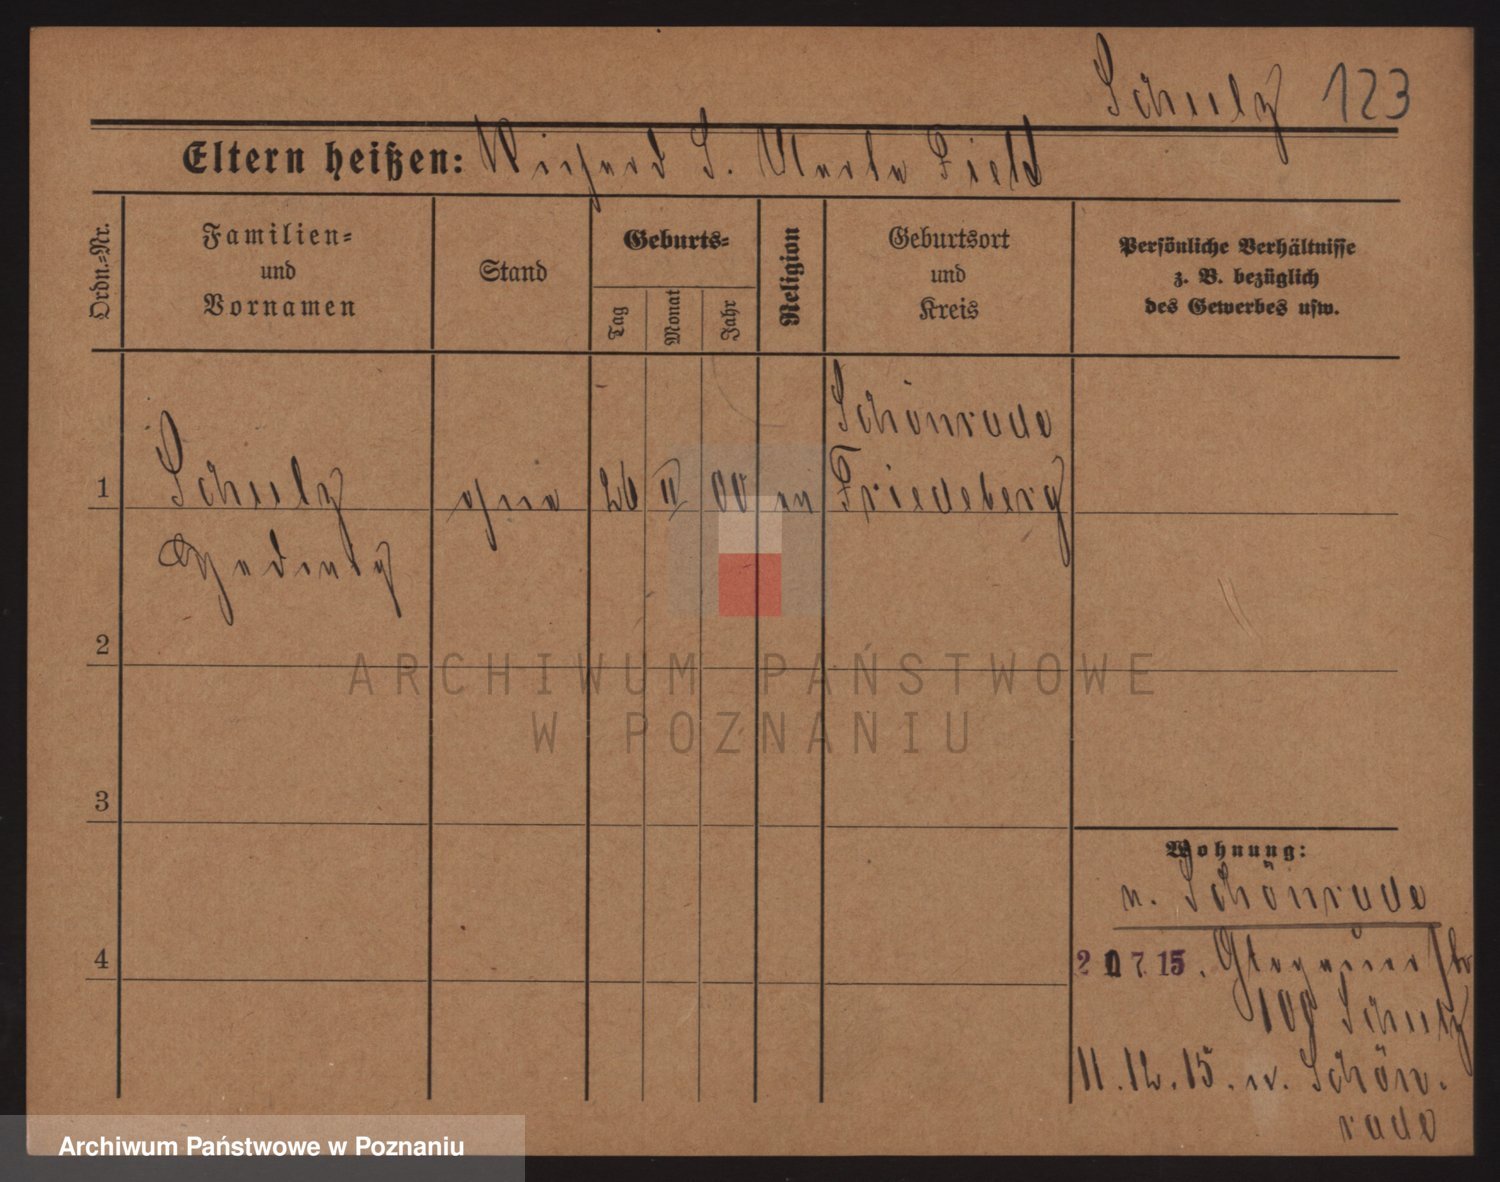 Schulz 123
Eltern heißen: Richard S. Marta Field
Ordn.-Nr.
Familien-
und
Vornamen
Stand
Geburts-
Tag
Monat
Jahr
Religion
Geburtsort
und
Kreis
Persönliche Verhältnisse
z. B. bezüglich
des Gewerbes usw.
Schönrade
1 Schulz ohne 26 II 00 Friedeberg
2
ARCHIWUM PAŃSTWOWE
W POZNANIU
3
Wohnung:
n. Schönrade
4
20 7. 15. Glogauer Str
Schulz
11. 12. 15. n. Schön-
rade
Archiwum Państwowe w Poznaniu